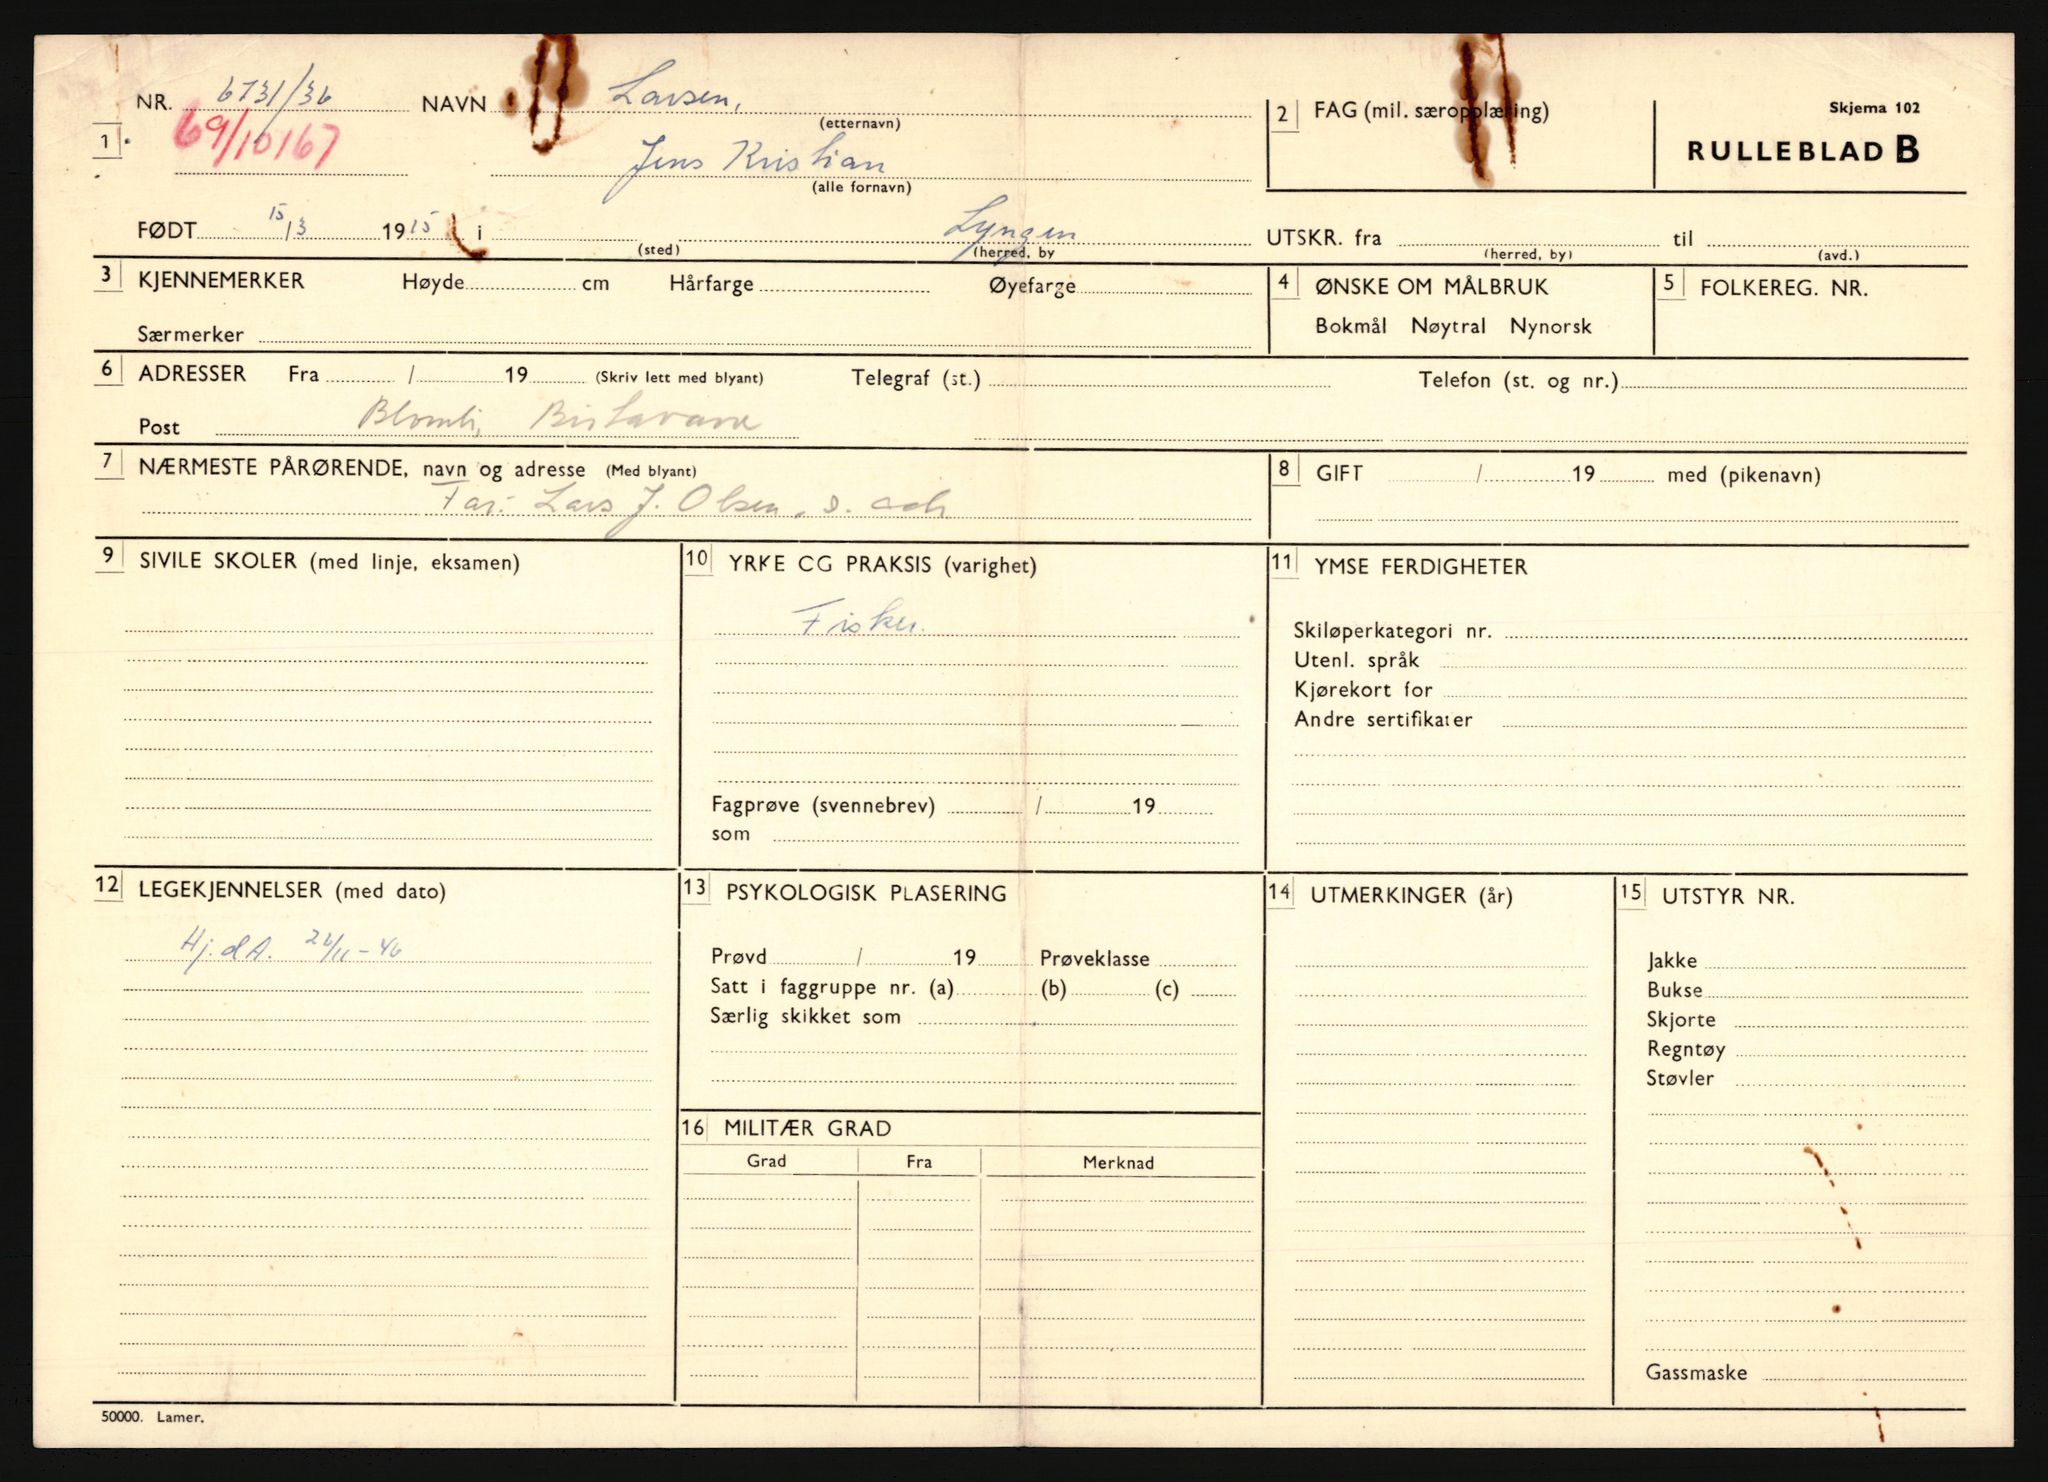 NR. 6731/36 NAVN Larsen,
(etternavn)
2 FAG (mil. særopplæring)
Skjema 102
RULLEBLAD B
1 69/10167
Jens Kristian
(alle fornavn)
FØDT 15/3 1915 i Lyngen
(sted) (herred, by
UTSKR. fra til
(herred, by) (avd.)
3 KJENNEMERKER Høyde cm Hårfarge Øyefarge
Særmerker
4 ØNSKE OM MÅLBRUK
Bokmål Nøytral Nynorsk
5 FOLKEREG. NR.
6 ADRESSER Fra / 19 (Skriv lett med blyant) Telegraf (st.) Telefon (st. og nr.)
Post Blomli, Birtavarre
7 NÆRMESTE PÅRØRENDE, navn og adresse (Med blyant)
Far: Lars J. Olsen, s. adr
8 GIFT / 19 med (pikenavn)
9 SIVILE SKOLER (med linje, eksamen)
10 YRKE CG PRAKSIS (varighet)
Fisker.
Fagprøve (svennebrev) / 19
som
11 YMSE FERDIGHETER
Skiløperkategori nr.
Utenl. språk
Kjørekort for
Andre sertifikater
12 LEGEKJENNELSER (med dato)
Hj. d A. 26/11-46
13 PSYKOLOGISK PLASERING
Prøvd / 19 Prøveklasse
Satt i faggruppe nr. (a) (b) (c)
Særlig skikket som
14 UTMERKINGER (år)
15 UTSTYR NR.
Jakke
Bukse
Skjorte
Regntøy
Støvler
Gassmaske
16 MILITÆR GRAD
Grad Fra Merknad
50000. Lamer.